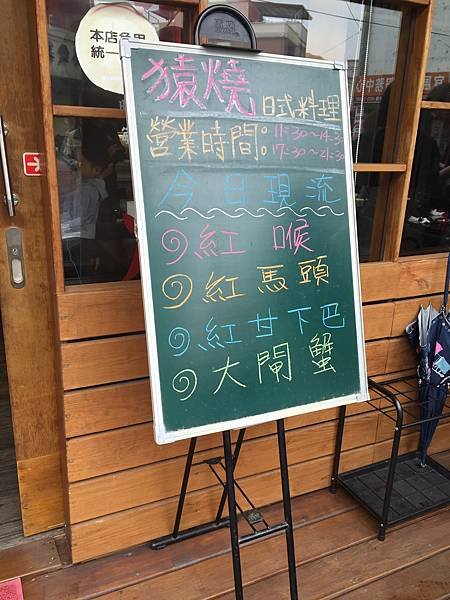 本店發票
統一
猿燒日式料理
營業時間:11:30~14:30
17:30~21:30
今日現流
紅喉
紅馬頭
紅甘下巴
大閘蟹